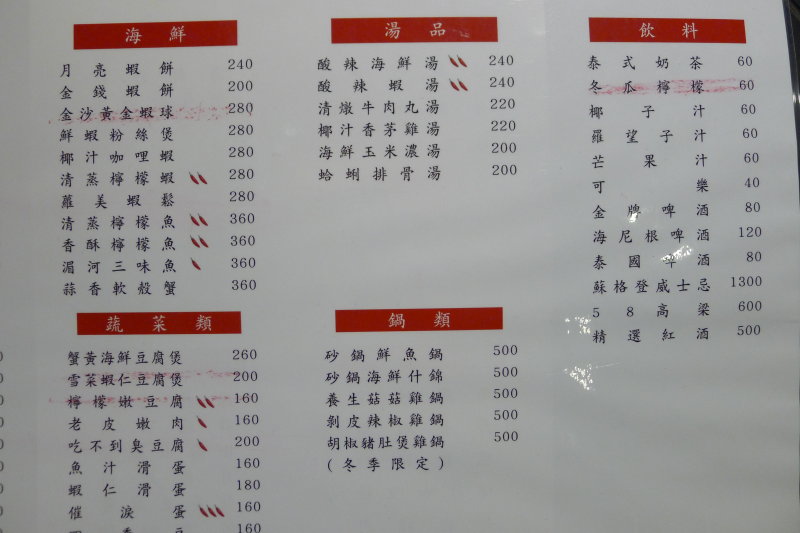 海鮮
月亮蝦餅 240
金錢蝦餅 200
金沙黃金蝦球 280
鮮蝦粉絲煲 280
椰汁咖哩蝦 280
清蒸檸檬蝦 280
蘿美蝦鬆 280
清蒸檸檬魚 360
香酥檸檬魚 360
湄河三味魚 360
蒜香軟殼蟹 360
蔬菜類
蟹黃海鮮豆腐煲 260
雪菜蝦仁豆腐煲 200
檸檬嫩豆腐 160
老皮嫩肉 160
吃不到臭豆腐 200
魚汁滑蛋 160
蝦仁滑蛋 180
催淚蛋 160
160
湯品
酸辣海鮮湯 240
酸辣蝦湯 240
清燉牛肉丸湯 220
椰汁香茅雞湯 220
海鮮玉米濃湯 200
蛤蜊排骨湯 200
鍋類
砂鍋鮮魚鍋 500
砂鍋海鮮什錦 500
養生菇菇雞鍋 500
剝皮辣椒雞鍋 500
胡椒豬肚煲雞鍋 500
(冬季限定)
飲料
泰式奶茶 60
冬瓜檸檬 60
椰子汁 60
羅望子汁 60
芒果汁 60
可樂 40
金牌啤酒 80
海尼根啤酒 120
泰國啤酒 80
蘇格登威士忌 1300
58高梁 600
精選紅酒 500